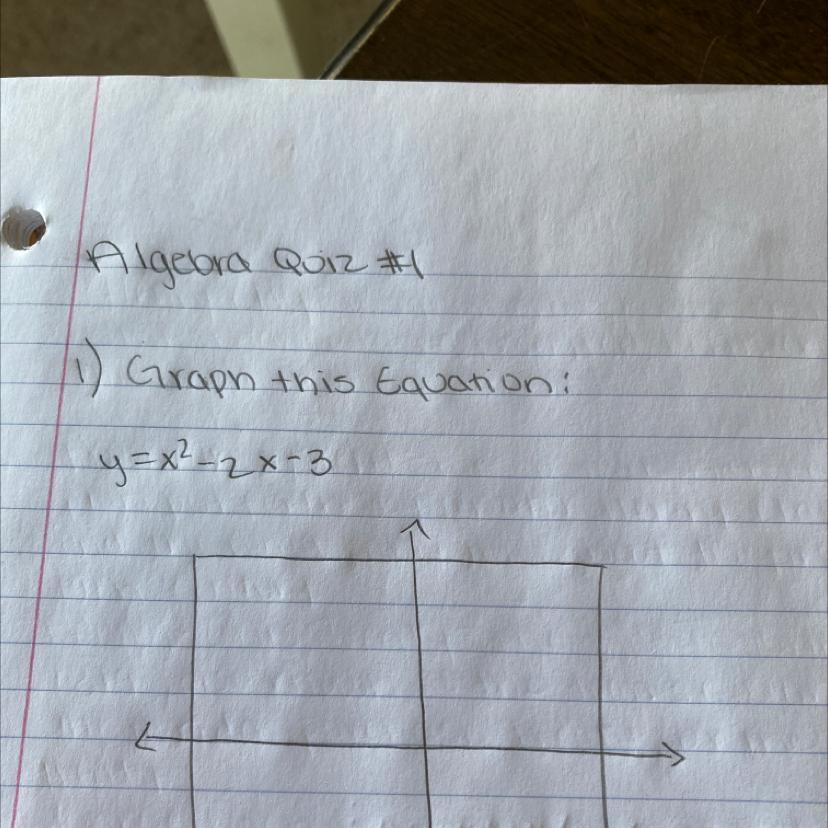 Algebra Quiz #1
1) Graph this Equation:
y=x²-2x-3